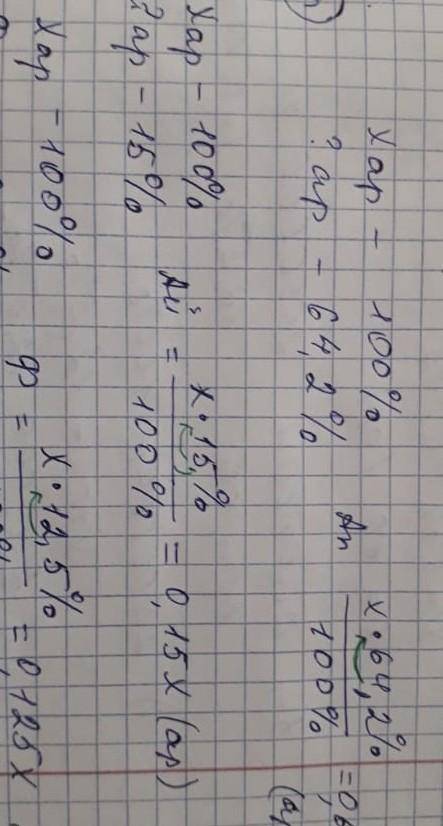 x ар - 100%
? ар - 64,2%
Ан x·64,2% / 100% = 0,6
(а
x ар - 100%
? ар - 15%
Ай = x·15% / 100% = 0,15x (ар)
x ар - 100%
ф = x·12,5% = 0,125x